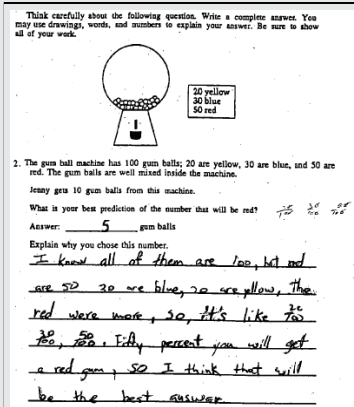 Think carefully about the following question. Write a complete answer. You
may use drawings, words, and numbers to explain your answer. Be sure to show
all of your work.
20 yellow
30 blue
50 red
2. The gum ball machine has 100 gum balls; 20 are yellow, 30 are blue, and 50 are
red. The gum balls are well mixed inside the machine.
Jenny gets 10 gum balls from this machine.
What is your best prediction of the number that will be red? 20/100 30/100 50/100
Answer: 5 gum balls
Explain why you chose this number.
I know all of them are 100, but red
are 50 30 are blue, 20 are yellow, the
red were more, so, it's like 20/100
30/100, 50/100. Fifty percent you will get
a red gum, so I think that will
be the best answer